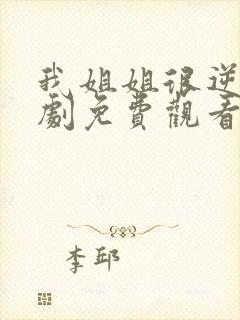 我姐姐很逆
劇免費觀看
李邱